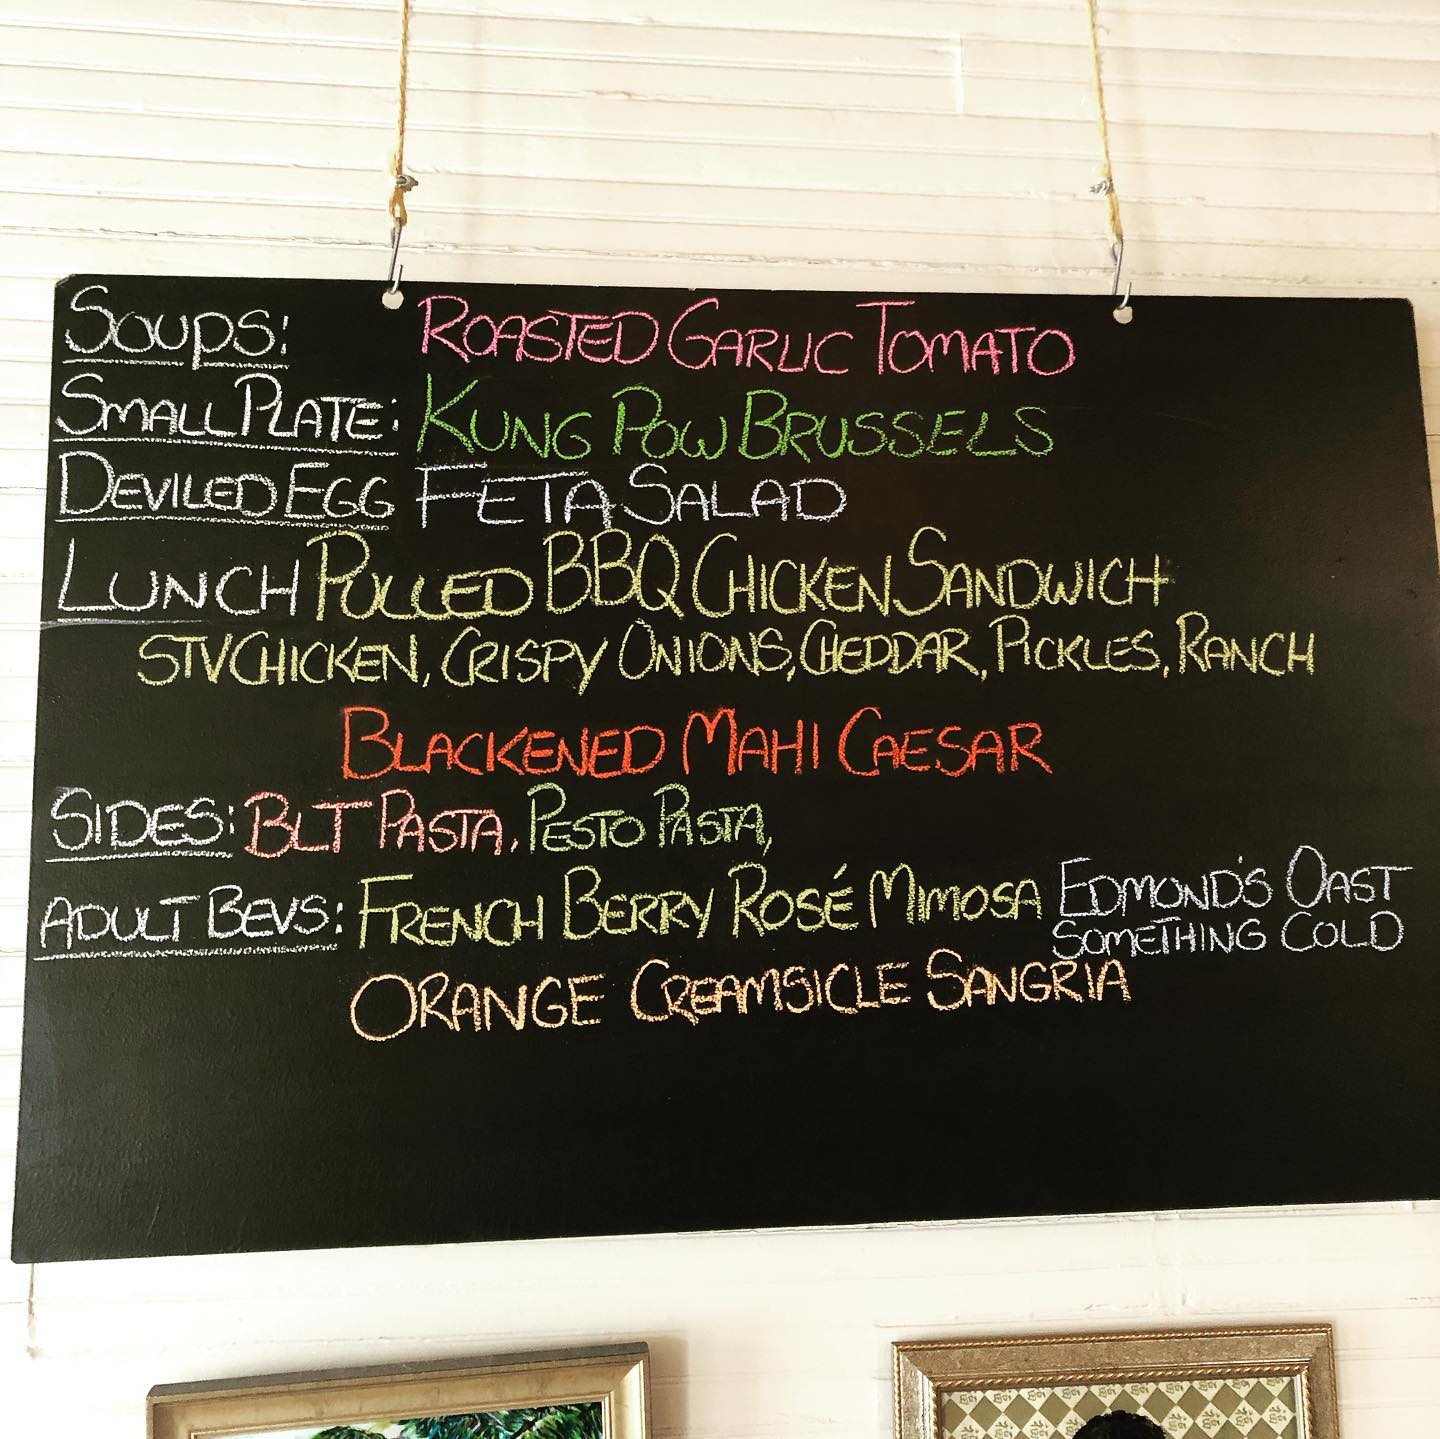 SOUPS: ROASTED GARLIC TOMATO
SMALL PLATE: KUNG POW BRUSSELS
DEVILED EGG FETA SALAD
LUNCH PULLED BBQ CHICKEN SANDWICH
STV CHICKEN, CRISPY ONIONS, CHEDDAR, PICKLES, RANCH
BLACKENED MAHI CAESAR
SIDES: BLT PASTA, PESTO PASTA,
ADULT BEVS: FRENCH BERRY ROSÉ MIMOSA EDMOND'S OAST
SOMETHING COLD
ORANGE CREAMSICLE SANGRIA